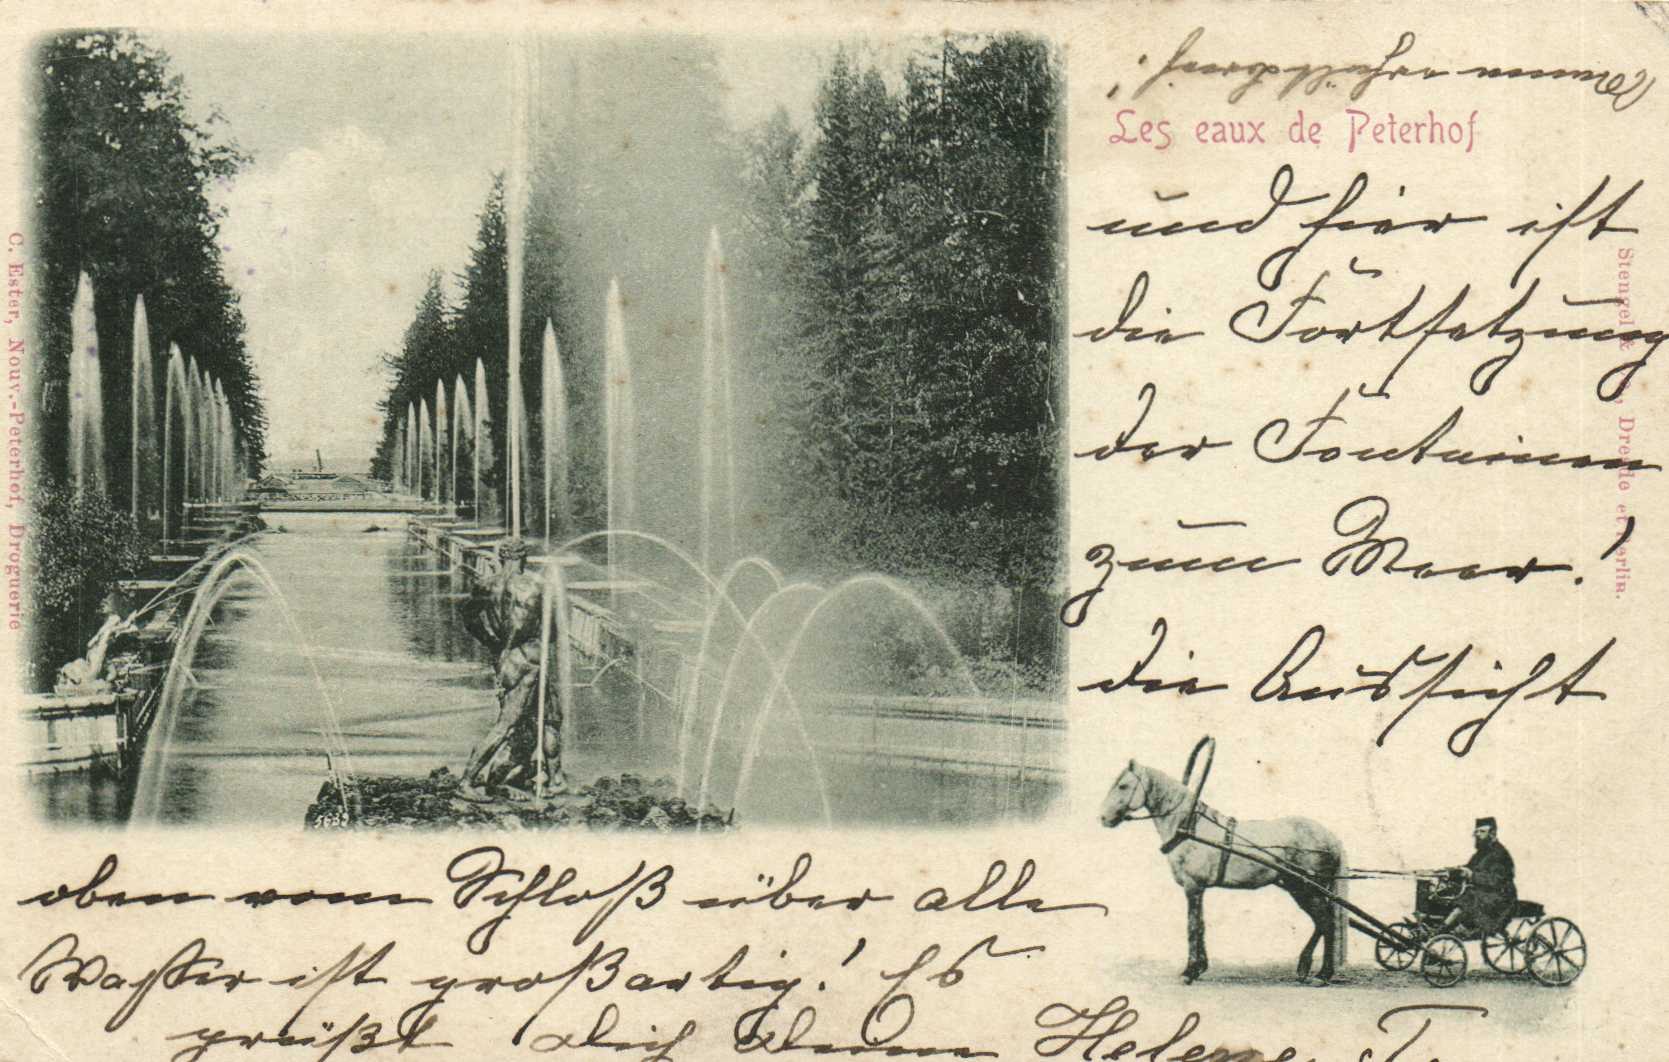 Les eaux de Peterhof
und hier ist
die Fortsetzung
der Fontainen
zum Meer!
die Aussicht
oben vom Schloß über alle
Wasser ist großartig! Es
grüßt Dich Deine Helene
C. Ester, Nouv.-Peterhof, Droguerie
Stengel & , Dresde et Berlin.
5689